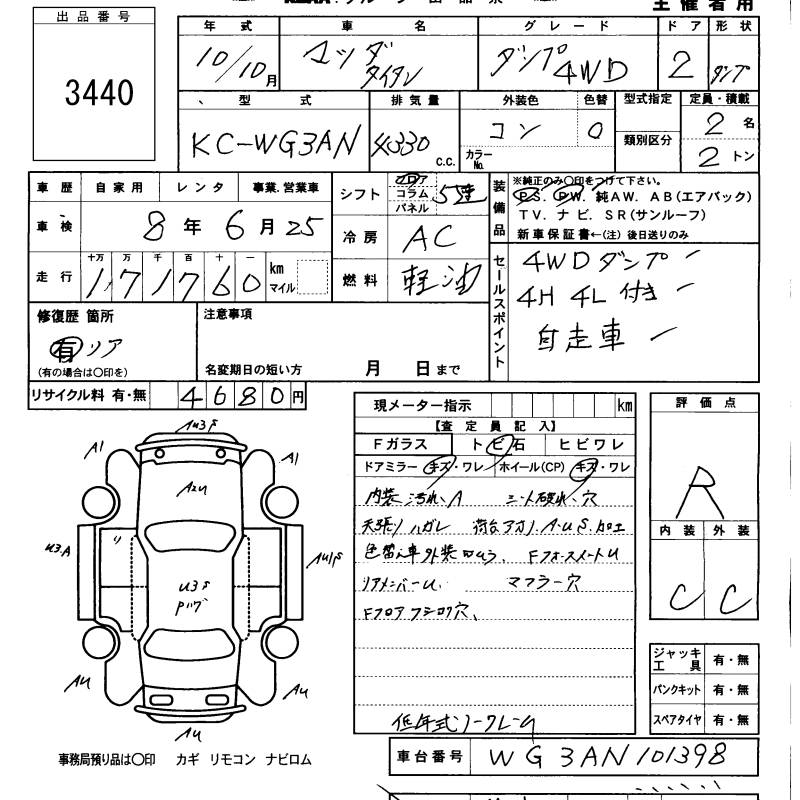 主催者用
出品番号
3440
年式 車名 グレード ドア 形状
10/10月 マツダ タイタン ダンプ 4WD 2 ダンプ
型式 排気量 外装色 色替 型式指定 定員・積載
KC-WG3AN 4330 c.c. コン 0 2名
カラーNo. 類別区分 2トン
車歴 自家用 レンタ 事業.営業車
車検 8年6月25
走行 十万 万 千 百 十 一
171760 km マイル
シフト フロア コラム パネル 5速
冷房 AC
燃料 軽油
装備品
※純正のみ○印をつけて下さい。
P.S. P.W. 純AW. AB(エアバック)
TV. ナビ. SR(サンルーフ)
新車保証書←(注) 後日送りのみ
セールスポイント
4WDダンプ
4H 4L 付き
自走車
修復歴 箇所
有 リア
(有の場合は○印を)
注意事項
名変期日の短い方 月 日まで
リサイクル料 有・無 4680円
現メーター指示 km
【査定員記入】
Fガラス トビ石 ヒビワレ
ドアミラー キズ・ワレ ホイール(CP) キズ・ワレ
内装汚れ、A シート破れ、穴
天張りハガレ 荷台アカリ.A.U.S.加工
色替え車外装 FフォースメートU
リアメンバーU. マフラー穴
Fフロア 穴、
低年式ノークレーム
評価点
R
内装 外装
C C
ジャッキ 工具 有・無
パンクキット 有・無
スペアタイヤ 有・無
A1 A1
A2U
U3.A リ
U3
AU AU
AU
事務局預り品は○印 カギ リモコン ナビロム
車台番号 WG3AN101398